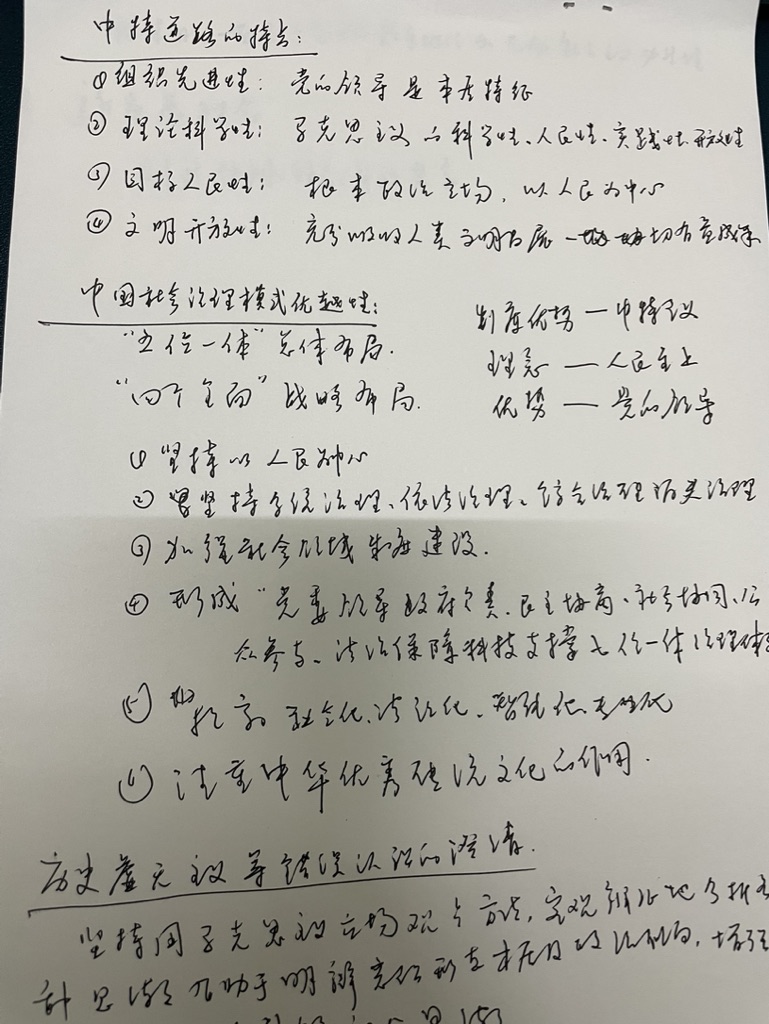 中特道路的特点:
①组织先进性: 党的领导是本质特征
② 理论科学性: 马克思主义的科学性、人民性、实践性、开放性
③ 目标人民性: 根本政治立场,以人民为中心
④ 文明开放性: 充分吸收人类文明发展一切有益成果
中国社会治理模式优越性:
"五位一体"总体布局.
"四个全面"战略布局.
制度优势 — 中特主义
理念 — 人民至上
优势 — 党的领导
① 坚持以人民为中心
② 坚持系统治理、依法治理、综合治理 源头治理
③ 加强社会领域制度建设.
④ 形成"党委领导政府负责、民主协商、社会协同、公
众参与、法治保障科技支撑七位一体治理体
⑤ 提高社会化、法治化、智能化、专业化
⑥ 注重中华优秀传统文化的作用.
历史虚无主义等错误认识的澄清.
坚持用马克思主义立场观点方法,客观辩证地分析
社思潮 有助于明辨 政治 , 增强